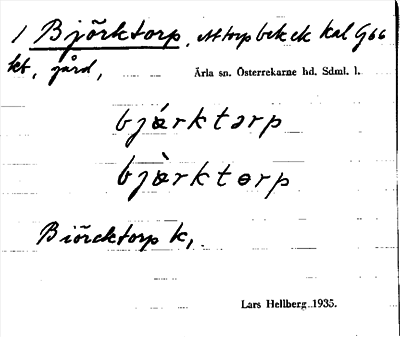 1 Björktorp, Attorp bck ek kal G66
kt, gård,
Ärla sn. Österrekarne hd. Sdml. l.
bjǿrktɔrp
bjø̀rktɵrp
Biörcktorp k,
Lars Hellberg 1935.